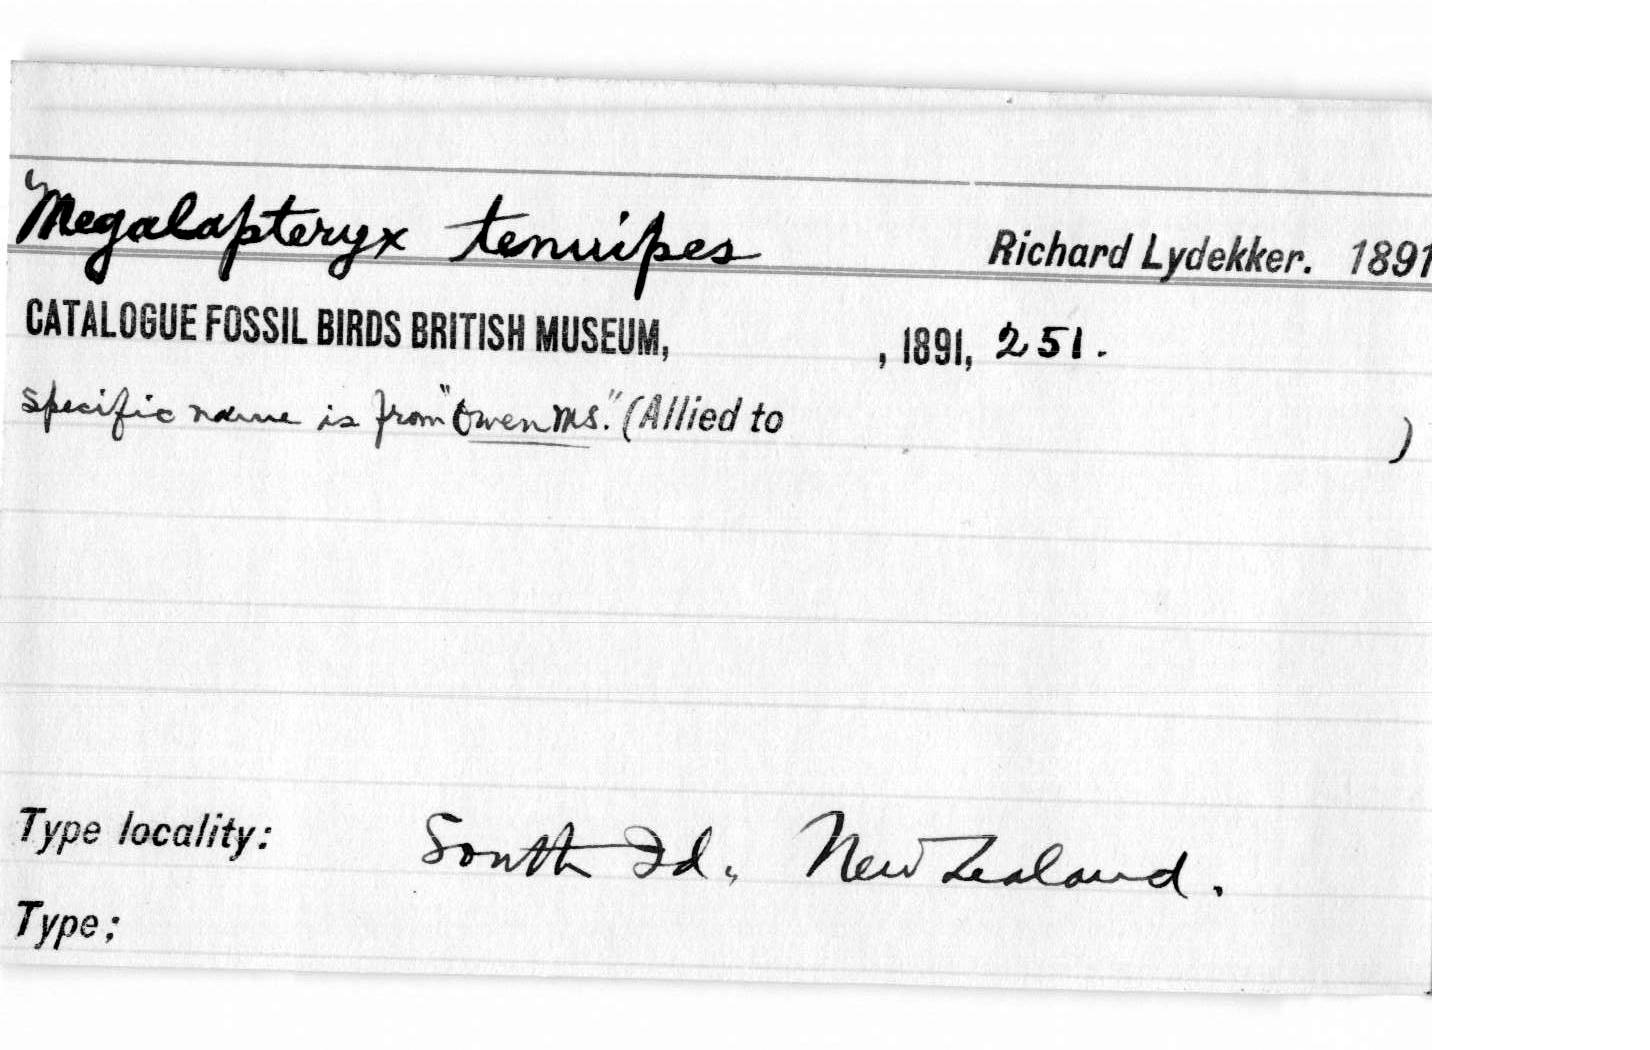 Megalapteryx tenuipes Richard Lydekker. 1891
CATALOGUE FOSSIL BIRDS BRITISH MUSEUM, , 1891, 251.
specific name is from "Owen MS." (Allied to )
Type locality: South Id., New Zealand.
Type: